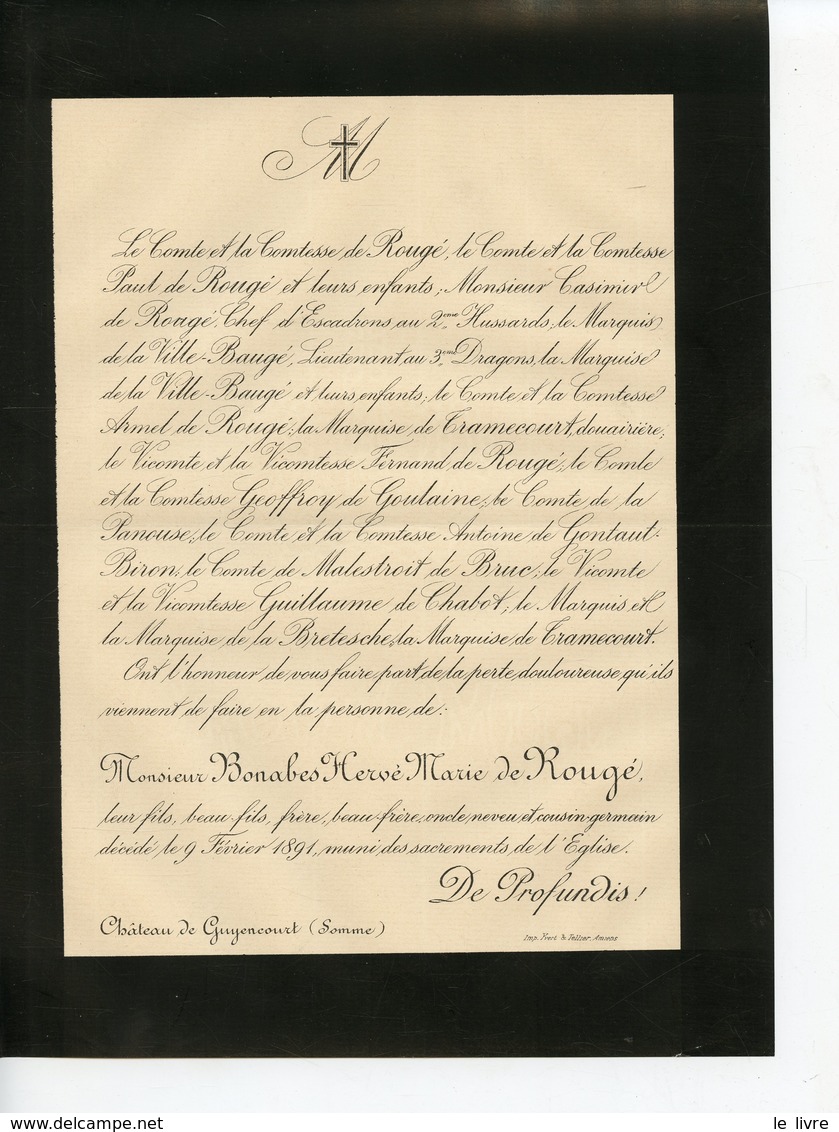 M
Le Comte et la Comtesse de Rougé, le Comte et la Comtesse
Paul de Rougé et leurs enfants; Monsieur Casimir
de Rougé, Chef d'Escadrons au 2ème Hussards; le Marquis
de la Ville-Baugé, Lieutenant au 3ème Dragons, la Marquise
de la Ville-Baugé et leurs enfants; le Comte et la Comtesse
Armel de Rougé; la Marquise de Tramecourt, douairière;
le Vicomte et la Vicomtesse Fernand de Rougé; le Comte
et la Comtesse Geoffroy de Goulaine; le Comte de la
Panouse; le Comte et la Comtesse Antoine de Gontaut-
Biron; le Comte de Malestroit de Bruc; le Vicomte
et la Vicomtesse Guillaume de Chabot; le Marquis et
la Marquise de la Bretesche; la Marquise de Tramecourt.
Ont l'honneur de vous faire part de la perte douloureuse qu'ils
viennent de faire en la personne de:
Monsieur Bonabes Hervé Marie de Rougé,
leur fils, beau-fils, frère, beau-frère, oncle, neveu et cousin-germain
décédé le 9 Février 1891, muni des sacrements de l'Eglise.
De Profundis!
Château de Guyencourt (Somme)
Imp. Yvert & Tellier, Amiens
le livre